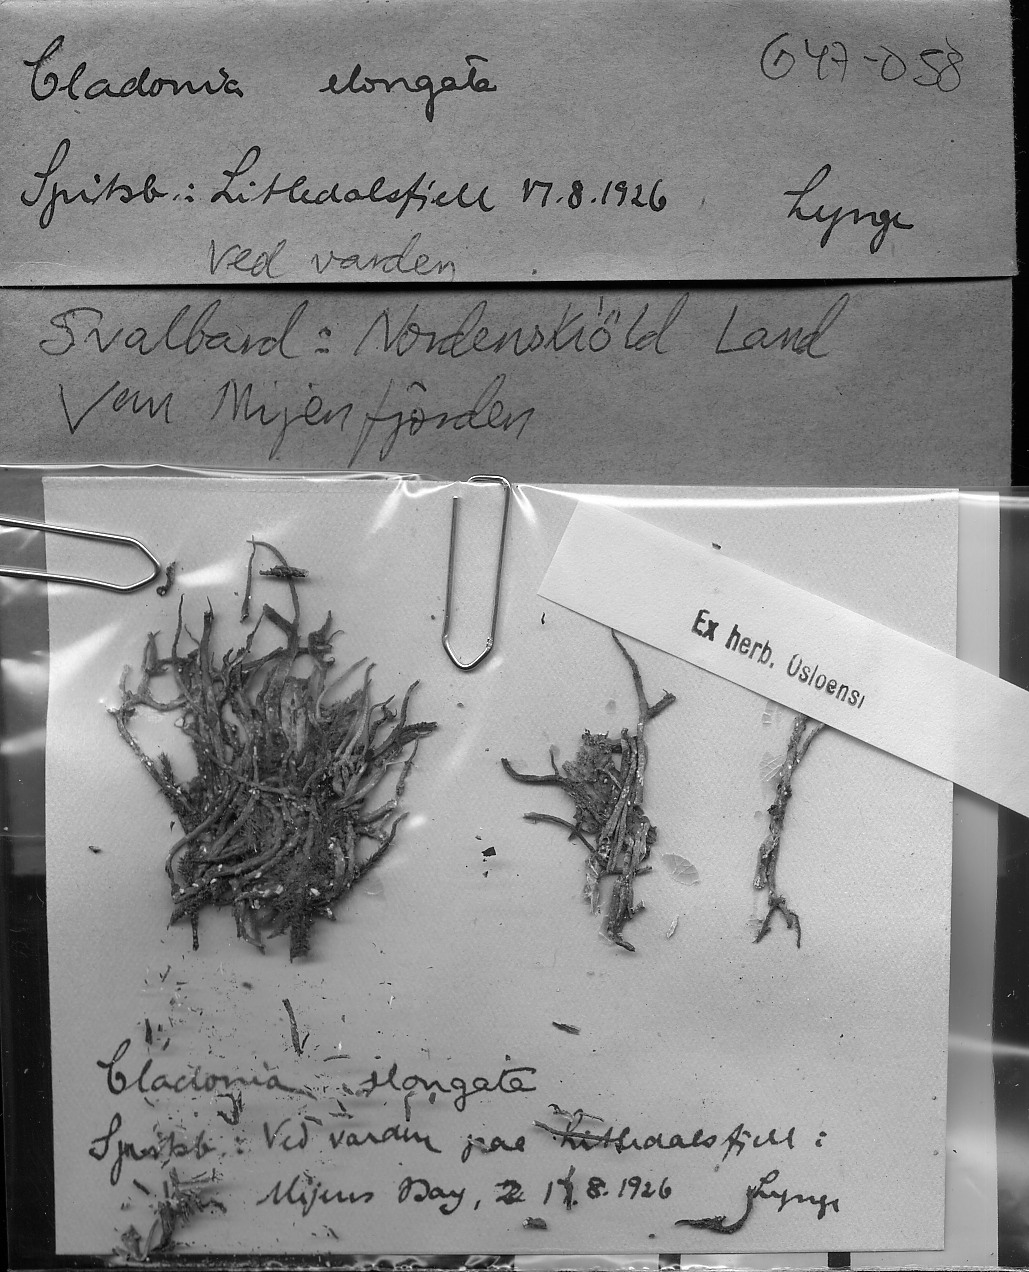 Cladonia elongata G47-058
Spitsb.: Litledalsfjell 17.8.1926 Lynge
Ved varden
Svalbard: Nordenskiöld Land
Van Mijenfjorden
Ex herb. Osloensi
Cladonia elongata
Spitsb.: Ved varden paa Litledalsfjell:
Mijens Bay, 17.8.1926 Lynge